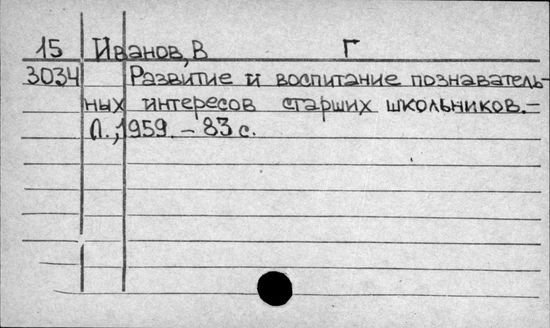 15 Иванов, В Г
3034 Развитие и воспитание познаватель-
ных интересов старших школьников.-
Л., 1959. - 83 с.